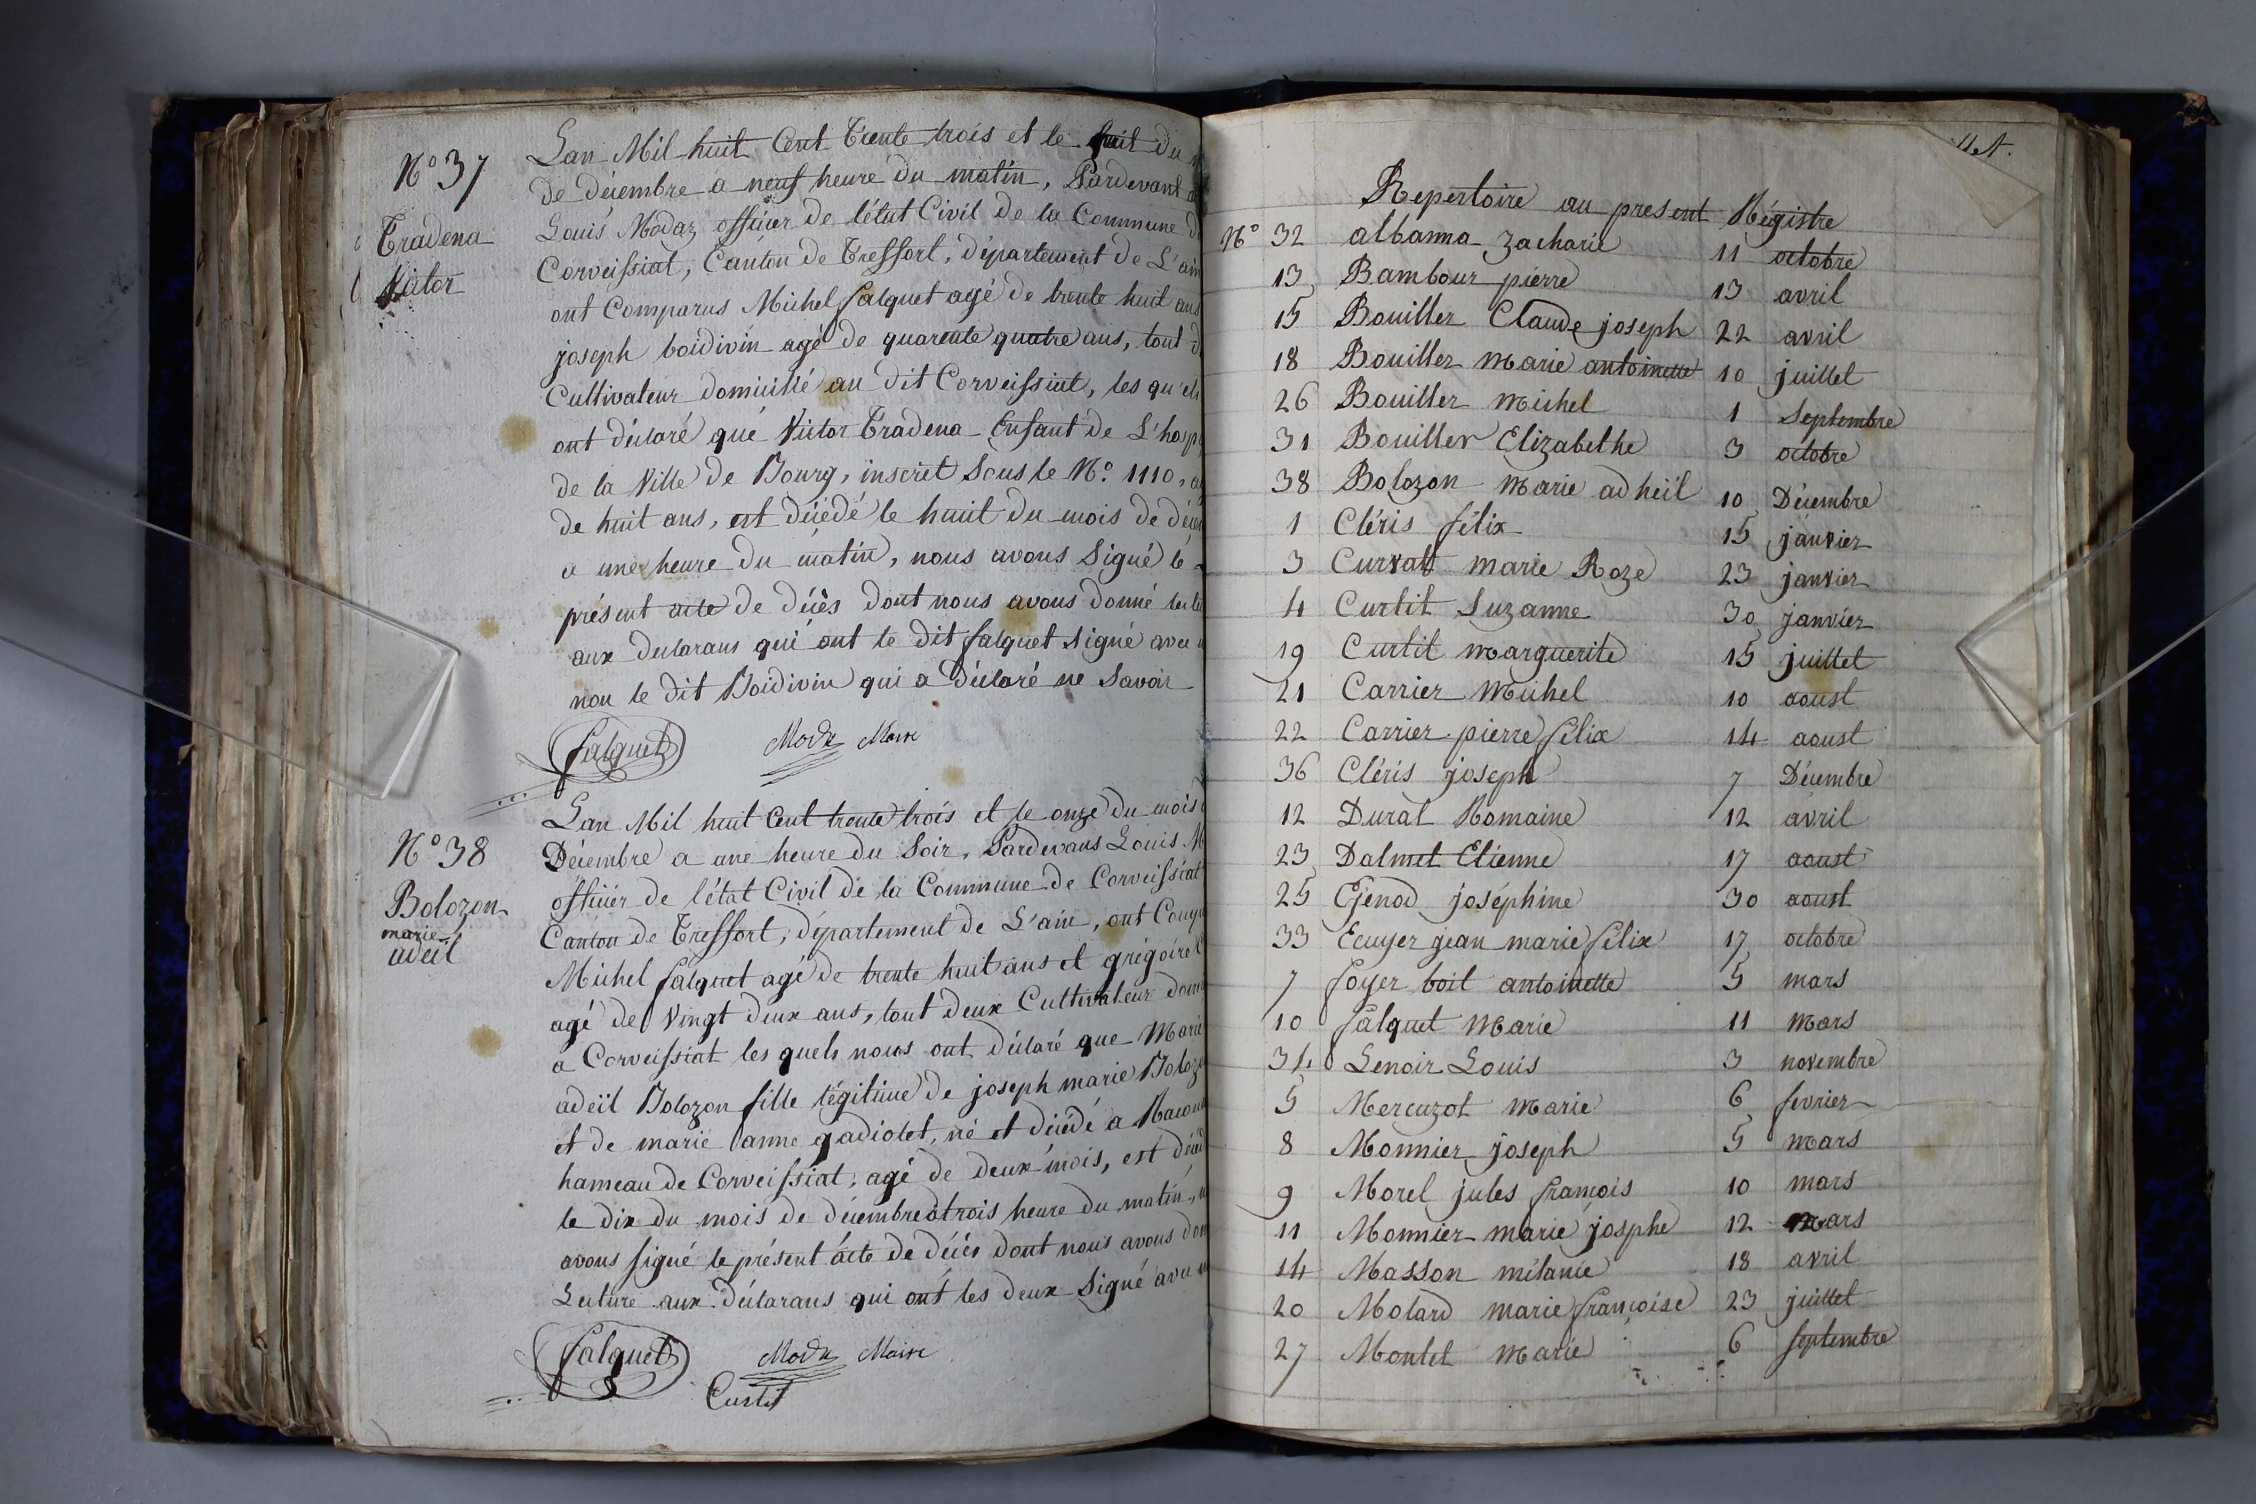 N° 37
Tradena
Victor
Lan Mil huit Cent Trente trois et le huit du
de décembre a neuf heure du matin, Pardevant
Louis Modaz officier de létat Civil de la Commune d
Corveissiat, Canton de Treffort, département de L'ain
ont Comparus Michel falquet agé de trente huit ans
joseph boidivin agé de quarente quatre ans, tout d
Cultivateur domicilié au dit Corveissiat, les quels
ont déclaré que Victor Tradena Enfant de L'hosp
de la Ville de Bourg, inscret Sous le N° 1110, a
de huit ans, est décédé le huit du mois de déce
a une heure du matin, nous avons Signé le
présent acte de décès dont nous avons donné lect
aux declarans qui ont le dit falquet signé avec
non le dit Boidivin qui a déclaré ne Savoir
falquet Modz Maire
N° 38
Bolozon
marie
adeil
Lan Mil huit Cent trente trois et le onze du mois
Décembre a une heure du Soir, Pardevans Louis M
officier de létat Civil de la Commune de Corveissiat
Canton de Treffort, département de L'ain, ont Comp
Michel falquet agé de trente huit ans et grégoire
agé de Vingt deux ans, tout deux Cultivateur dom
a Corveissiat les quels nous ont déclaré que Marie
adeïl Bolozon fille légitime de joseph marie Boloz
et de marie anne gadiolet, né et décédé a Racou
hameau de Corveissiat, agé de deux mois, est décéd
le dix du mois de décembre a trois heure du matin,
avons signé le présent acte de décès dont nous avons don
Lecture aux déclarans qui ont les deux Signé avec
falquet Modz Maire
Curtit
illet.
Repertoire au present Régistre
N° 32 albanna zacharie 11 octobre
13 Bambour pierre 13 avril
15 Bouillez Claude joseph 22 avril
18 Bouillez Marie antoinette 10 juillet
26 Bouillez Michel 1 Septembre
31 Bouiller Elizabethe 3 octobre
38 Bolozon Marie adheïl 10 Décembre
1 Cléris félix 15 janvier
3 Curvatt marie Roze 23 janvier
4 Curtit Suzanne 30 janvier
19 Curtit Marguerite 15 juillet
21 Carrier Michel 10 aoust
22 Carrier pierre félix 14 aoust
36 Cléris joseph 7 Décembre
12 Durat Romaine 12 avril
23 Dalmet Etienne 17 aoust
25 Ejenod joséphine 30 aoust
33 Ecuyer jean marie félix 17 octobre
7 foyer boit antoinette 5 mars
10 falquet Marie 11 Mars
34 Lenoir Louis 3 novembre
5 Mercuzot Marie 6 fevrier
8 Monnier joseph 5 Mars
9 Morel jules françois 10 mars
11 Monnier marie josphe 12 Mars
14 Masson mélanie 18 avril
20 Molard marie françoise 23 juillet
27 Montet Marie 6 septembre